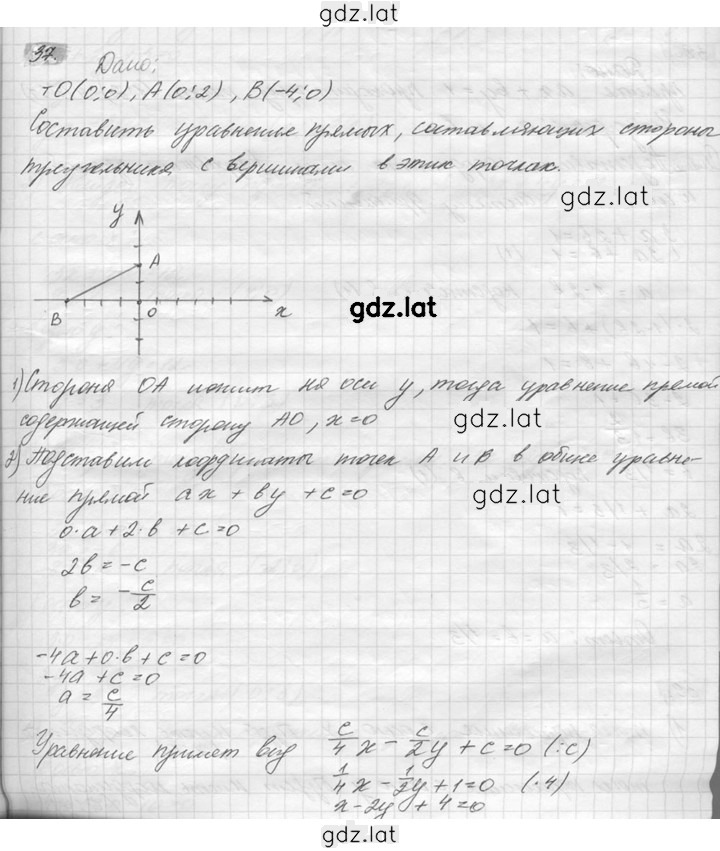 gdz.lat
37.
Дано:
тO(0;0), A(0;2), B(-4;0)
Составить уравнение прямых, составляющих стороны
треугольника с вершинами в этих точках.
gdz.lat
y
A
B
O
x
gdz.lat
1) Сторона OA лежит на оси y, тогда уравнение прямой
содержащей сторону AO, x=0
gdz.lat
2) Подставим координаты точек A и B в общее уравне-
ние прямой ax + by + c=0
gdz.lat
0·a+2·b+c=0
2b=-c
b= -c/2
-4a+0·b+c=0
-4a+c=0
a= c/4
Уравнение примет вид c/4 x - c/2 y + c=0 (:c)
1/4 x - 1/2 y + 1=0 (·4)
x-2y+4=0
gdz.lat